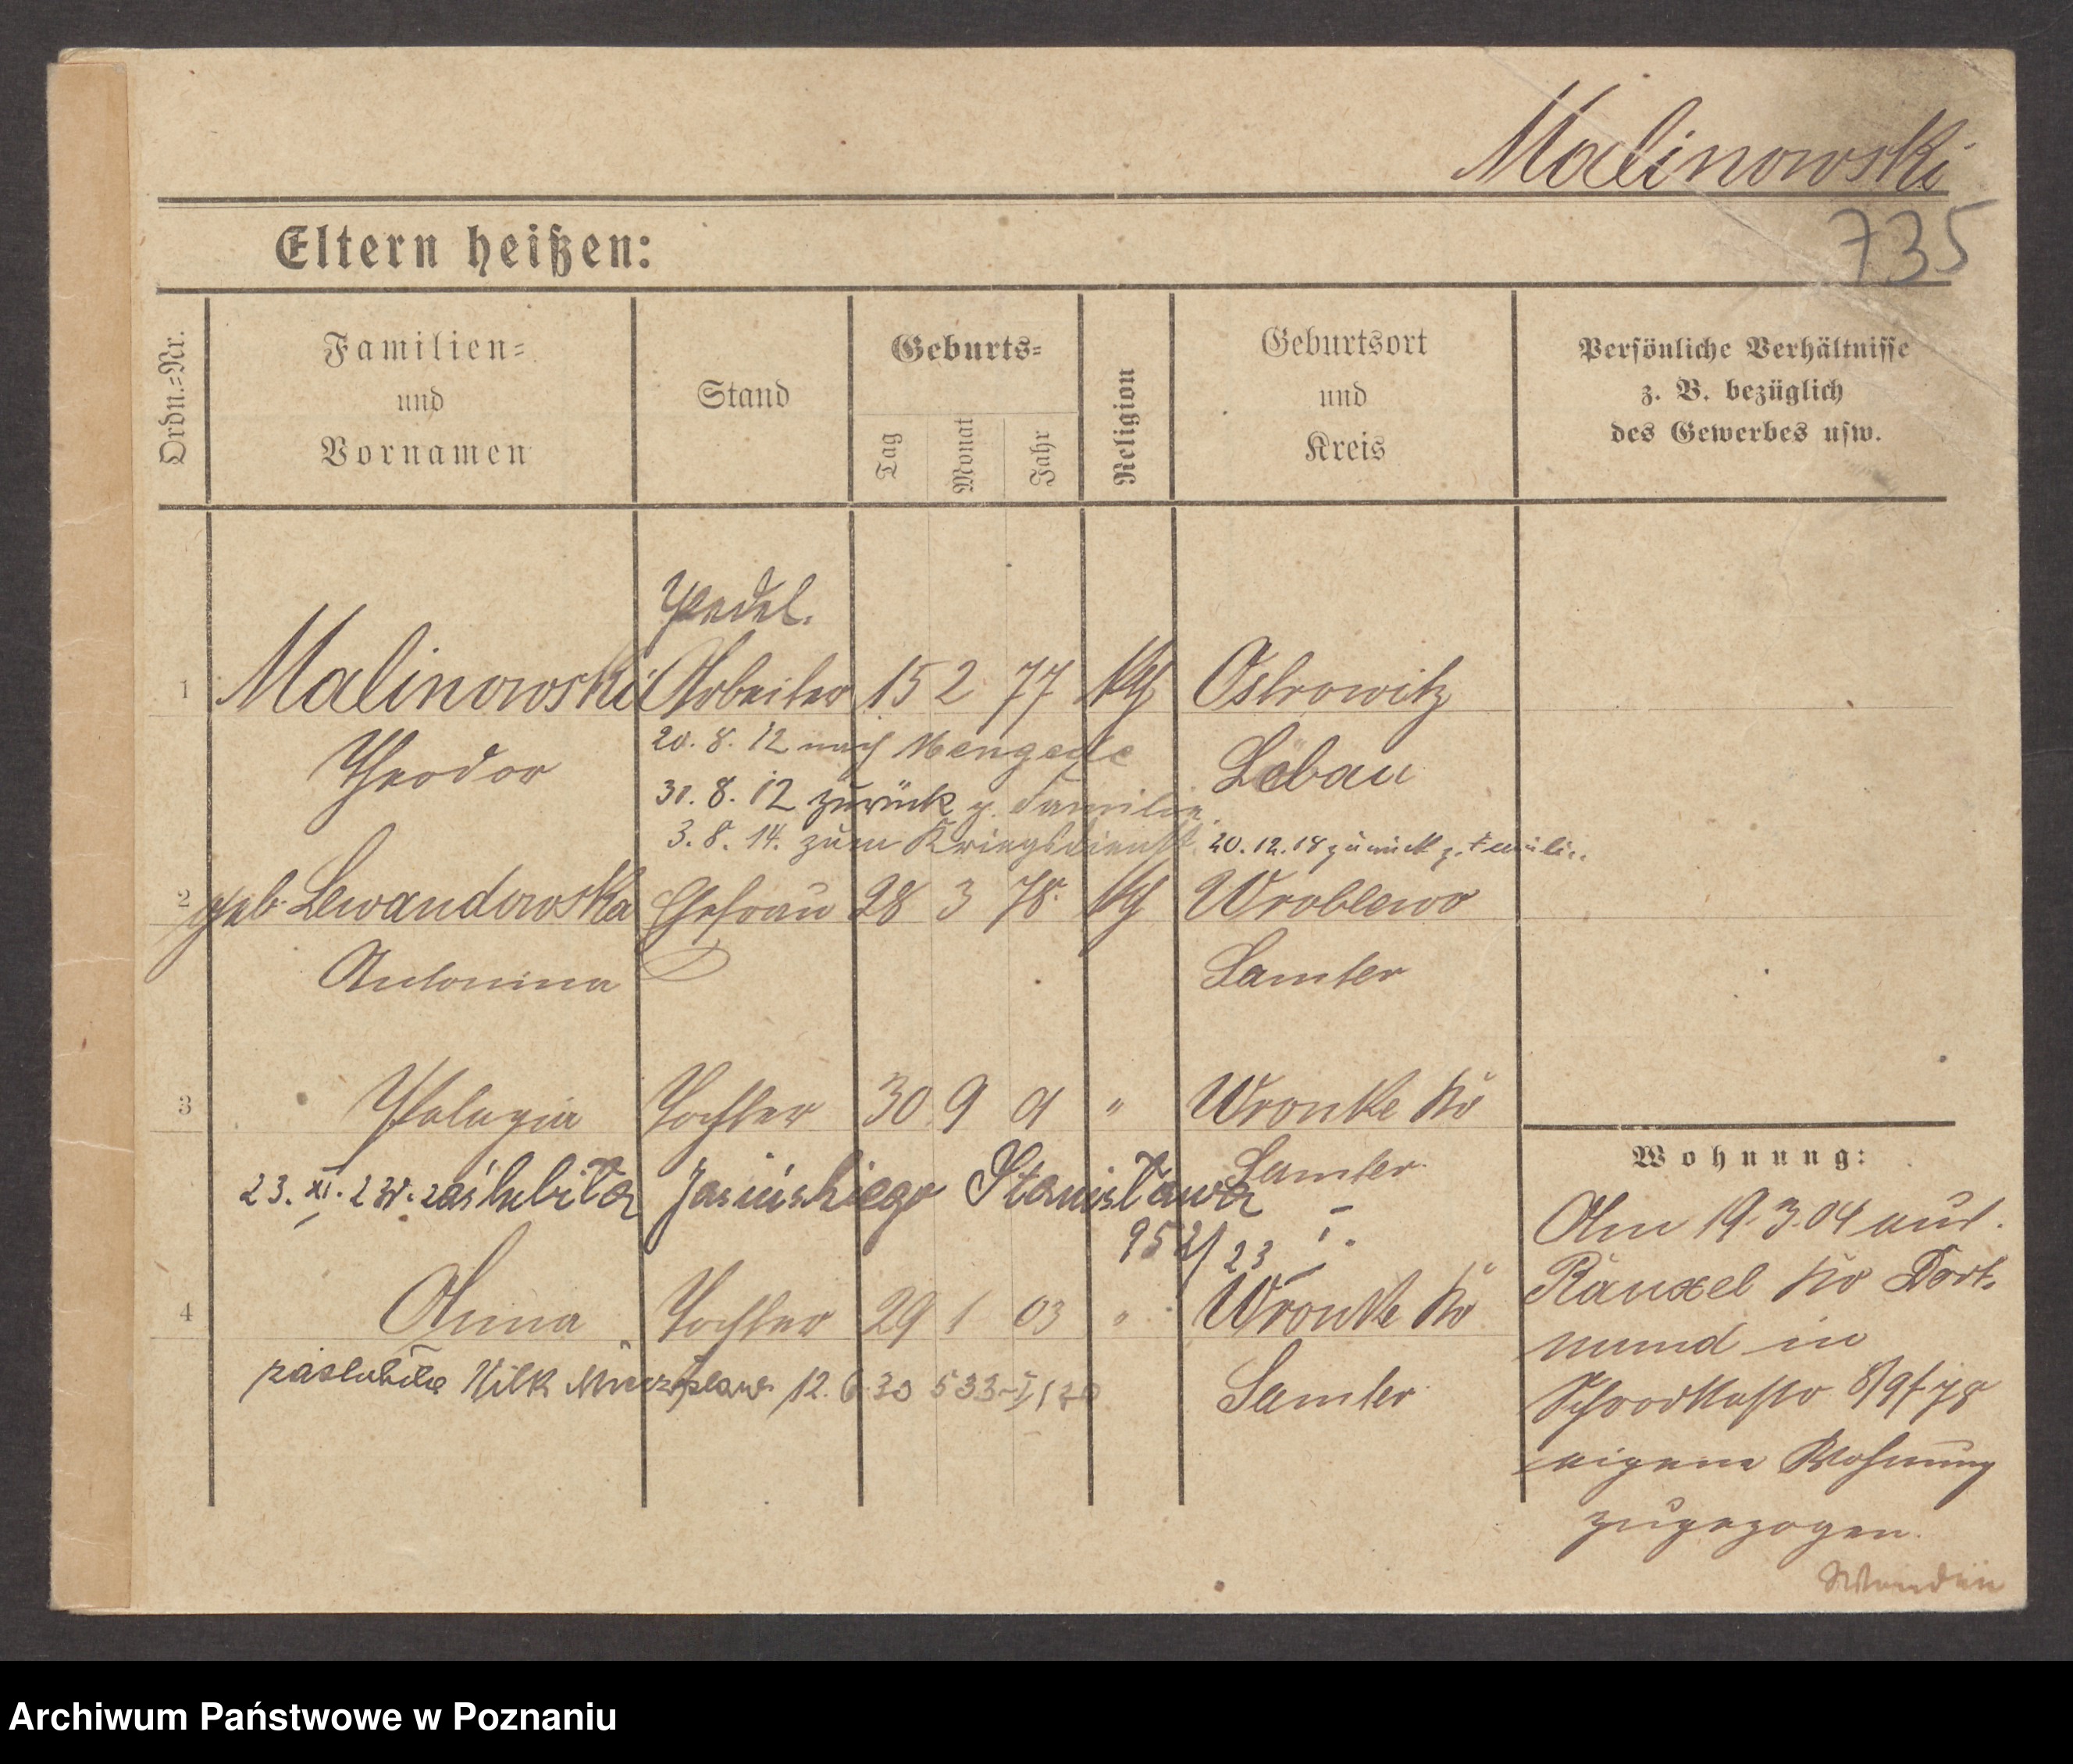 Malinowski
735
Eltern heißen:
Ordn.=Nr.
Familien=
und
Vornamen
Stand
Geburts=
Tag
Monat
Jahr
Religion
Geburtsort
und
Kreis
Persönliche Verhältnisse
z. B. bezüglich
des Gewerbes usw.
Pedel.
1 Malinowski Arbeiter 15 2 77 kth Ostrowitz
Theodor
Löbau
20. 8. 12 nach Mengede
31. 8. 12 zurück z. Familie
3. 8. 14. zum Kriegsdienst. 20.12.18 zurück z. Familie
2 geb. Lewandowska Ehefrau 28 3 78. kth Wroblewo
Antonina
Samter
3 Pelagia Tochter 30 9 01 " Wronke Kr
Samter
23. XI. 23 r. zaślubiła Jasińskiego Stanisława
4 Anna Tochter 29 1 03 " Wronke Kr
Samter
zaślubiła Wilk 12. 6 30
Wohnung:
Am 19.3.04 aus.
Rauxel Kr Dort-
mund in
eigene Wohnung
zugezogen.
Archiwum Państwowe w Poznaniu